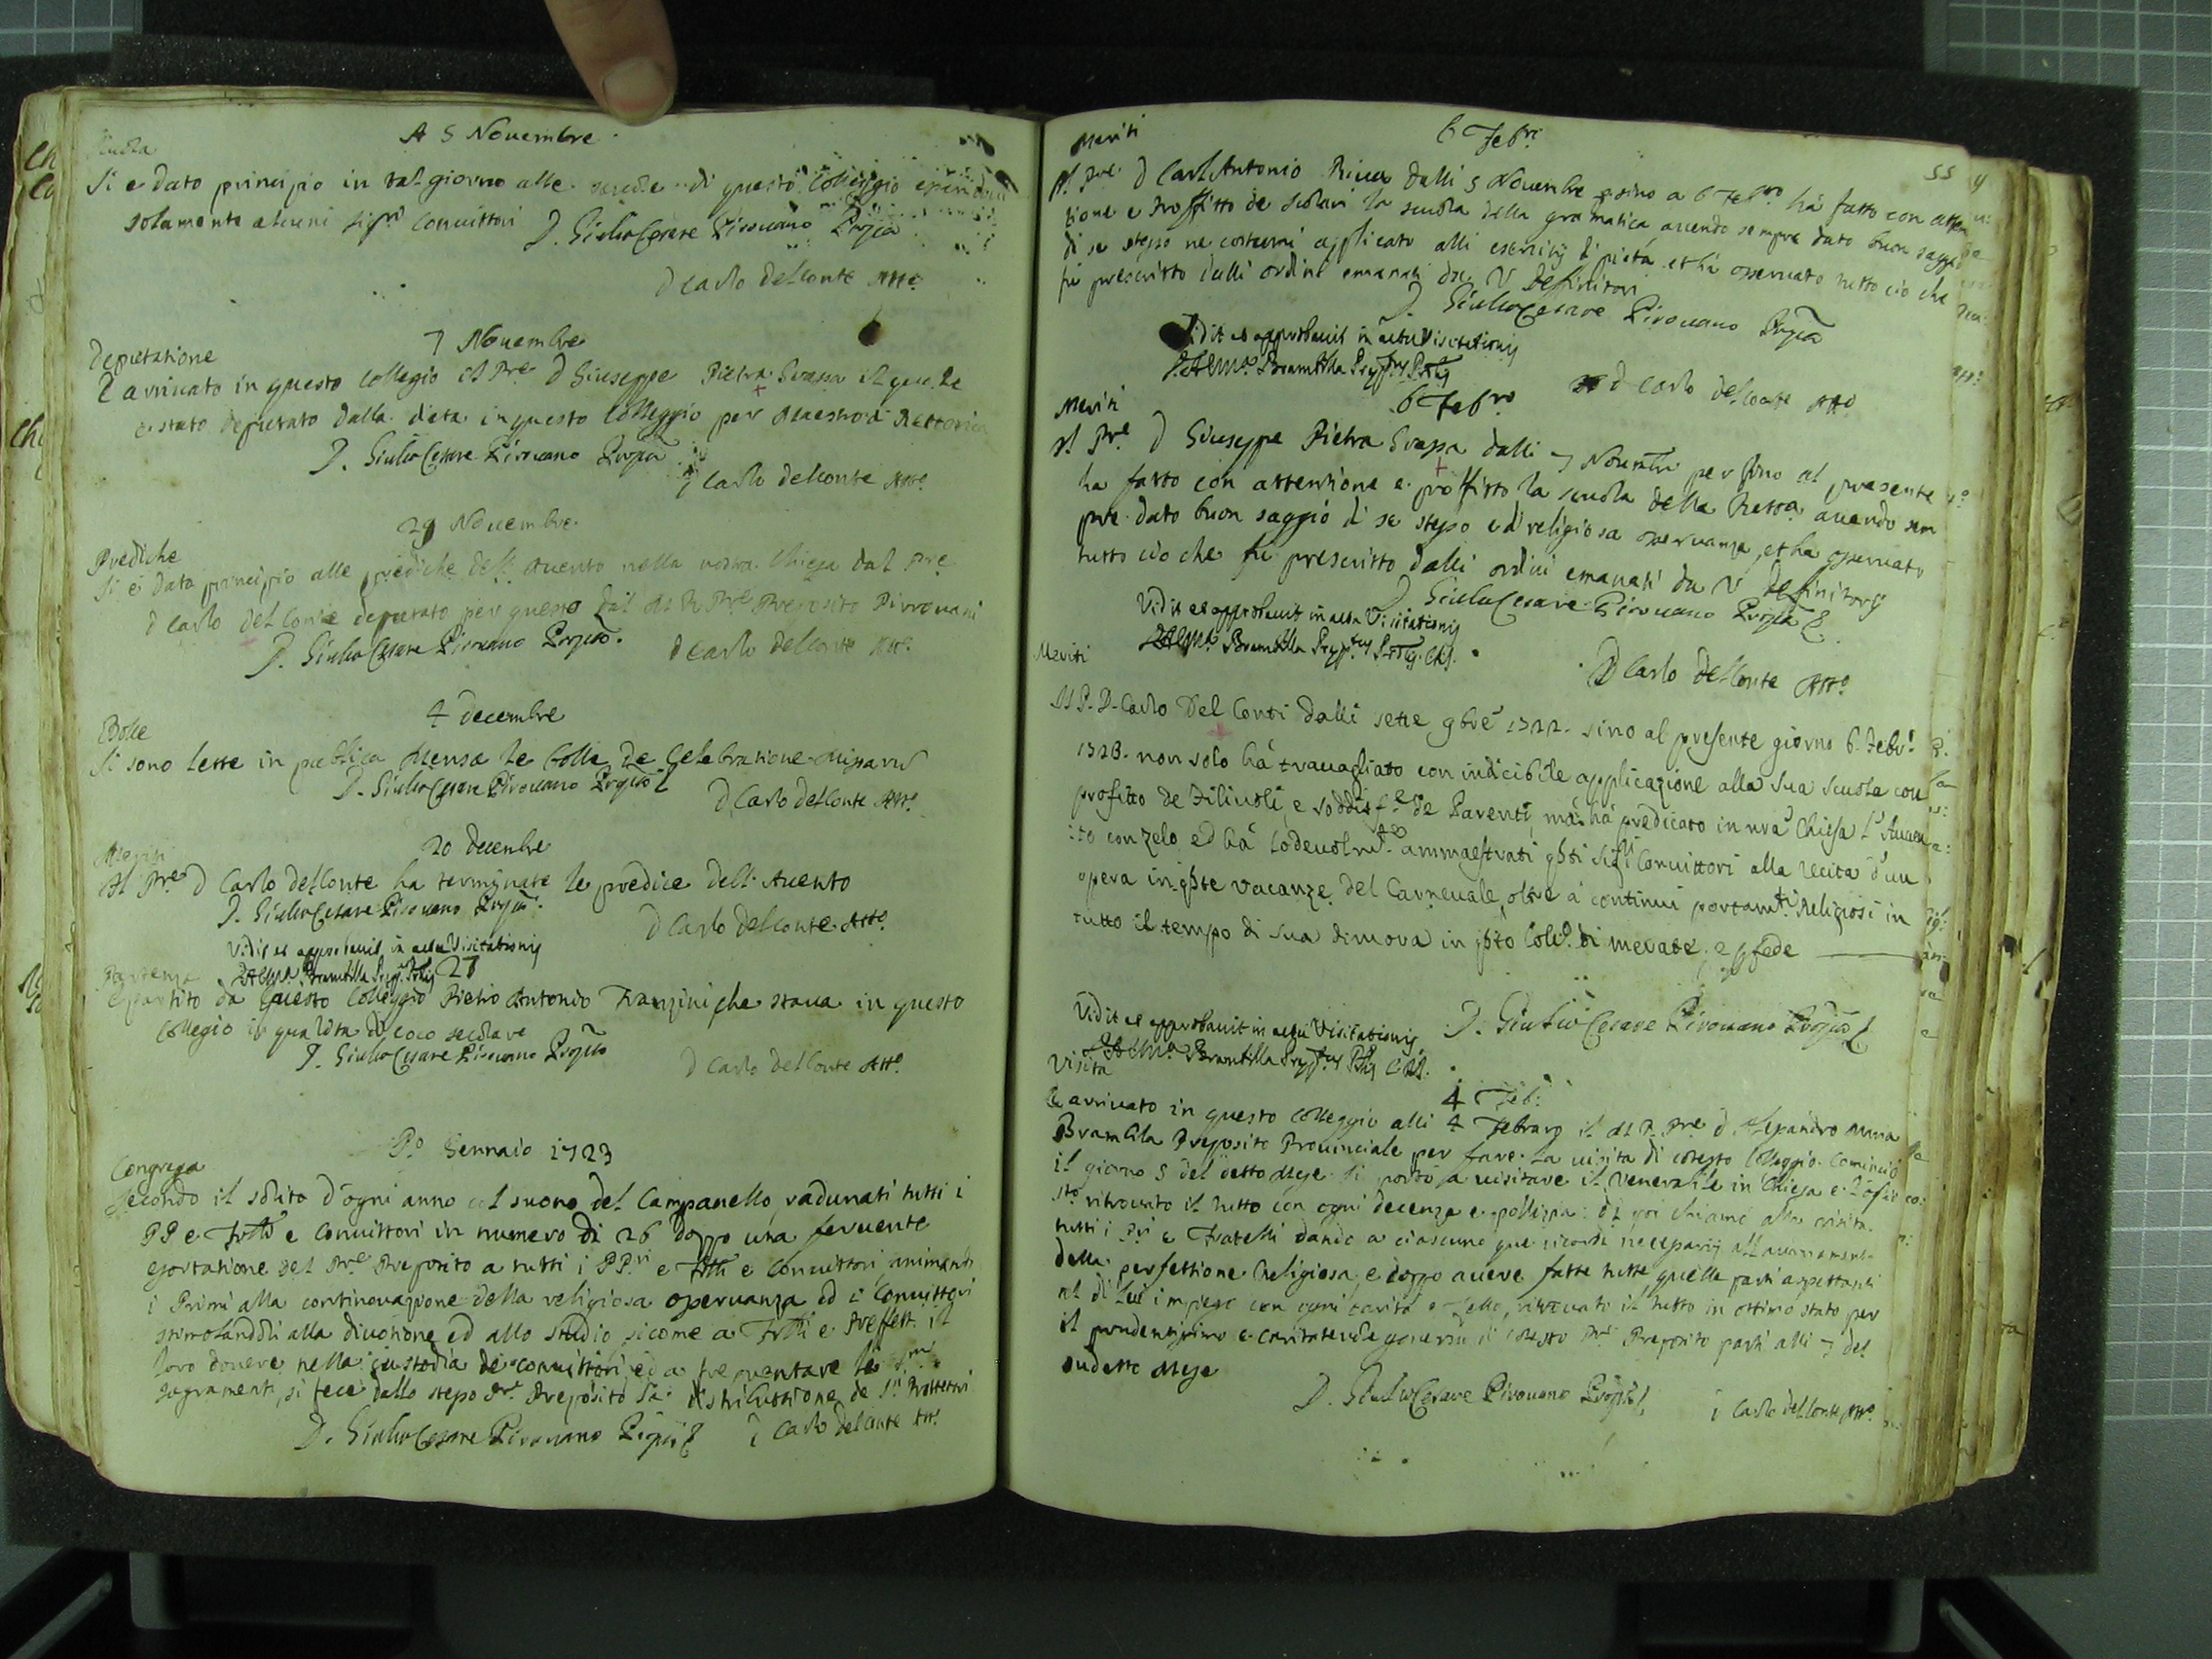 A 5 Nouembre
Scuola
Si e dato principio in tal giorno alle scuole di questo Colleggio essendoui
solamente alcuni sigri Conuittori D. Giulio Cesare Pirouano Prepto
D Carlo del Conte Atto
7 Nouembre
Deputatione
È arriuato in questo Collegio il Pre D Giuseppe Pietra Grassa il quale
e stato deputato dalla dieta in questo Colleggio per Maestro di Rettorica
D. Giulio Cesare Pirouano Prepto
D Carlo del Conte Atto
29 Nouembre
Prediche
Si è dato principio alle prediche dell Auento nella nostra Chiesa dal Pre
D Carlo del Conte deputato per questo dal M R Pre Preposito Pirrouani
D. Giulio Cesare Pirouano Prepto. D Carlo del Conte Atto
4 decembre
Bolle
Si sono lette in publica Mensa le bolle De Celebratione Missarum
D. Giulio Cesare Pirouano Prepto D Carlo del Conte Atto
20 decembre
Meriti
Il Pre D Carlo del Conte ha terminate le predice dell Auento
D. Giulio Cesare Pirouano Prepto
D Carlo del Conte Atto
Vidit et approbauit in actu Visitationis
Brambilla
27
Partenza
È partito da questo Colleggio Pietro Antonio Franzini che staua in questo
Collegio in qualità di coco secolare
D. Giulio Cesare Pirouano Prepto D Carlo del Conte Atto
Po Gennaio 1723
Congrega
Secondo il solito d'ogni anno col suono del Campanello, radunati tutti i
PP e Frlli e Conuittori in numero di 26 doppo una feruente
esortatione del Pre Preposito a tutti i PPri e Frlli e Conuittori, animanti
i Primi alla continouazione della religiosa osseruanza ed i Conuittori
stimolandoli alla diuotione ed allo studio, sicome a Frlli e Preffetti il
loro douere nella custodia de conuittori, ed a frequentare li Smi
sagramenti, si fece dallo stesso Pre Preposito la distributtione de Sti Protettori
D. Giulio Cesare Pirouano Prepto D Carlo del Conte Atto
55
6 Febro
Meriti
Il Pre D Carl'Antonio Riua dalli 5 Nouenbre sino a 6 Febro hà fatto con atten
tione e proffitto de scolari la scuola della gramatica, auendo sempre dato buon saggio
di se stesso ne costumi applicato alli esercitij di pietà et hà osseruato tutto ciò che
fù prescritto dalli ordini emanati da V Definitori
D. Giulio Cesare Pirouano Prepto
Vidit et approbauit in actu Visitationis
Brambilla
D Carlo del Conte Atto
6 Febro
Meriti
Il Pre D Giuseppe Pietra Grassa dalli 7 Nouembre per fino al presente
ha fatto con attentione e proffitto la scuola della Rettoa auendo sem
pre dato buon saggio di se stesso e di religiosa osseruanza, et ha osseruato
tutto ciò che fu prescritto dalli ordini emanati da V Definitorij
D Giulio Cesare Pirouano Prepto
Vidit et approbauit in actu Visitationis
Brambilla
D Carlo del Conte Atto
Meriti
Il P. D. Carlo Del Conti dalli sette 9bre 1722. sino al presente giorno 6. Febro
1723. non solo hà trauagliato con indicibile applicazione alla sua scuola con
profitto de Filiuoli, e soddisfne de Parenti, mà hà predicato in nra Chiesa l'Auuen
to con zelo, ed hà lodeuolmte ammaestrati qsti Sigri Conuittori alla recita d'un
opera in qste vacanze del Carneuale, oltre à continui portamti Religiosi in
tutto il tempo di sua dimora in qsto Collo di merate, e p fede
Vidit et approbauit in actu Visitationis
D. Giulio Cesare Pirouano Prepto
Brambilla
4 Feb:
Visita
È arriuato in questo Colleggio alli 4 Febraro il M R. Pre D. Alessandro Maria
Brambila Preposito Prouinciale per fare la visita di cotesto Colleggio. Cominciò
il giorno 5 del detto Mese. Si portò a uisitare il Venerabile in Chiesa
ritrouato il tutto con ogni decenza e pollizia: di poi chiamò alla visita
tutti i Pri e Fratelli dando a ciascuno que ricordi necessarij
della perfettione Religiosa, e doppo auere fatte tutte quelle parti aspettanti
al di lui impiego con ogni carità e zello, ritrouato il tutto in ottimo stato per
il prudentissimo e caritateuole gouerno di cotesto Pre Preposito partì alli 7 del
sudetto Mese
D. Giulio Cesare Pirouano Prepto D Carlo del Conte Atto